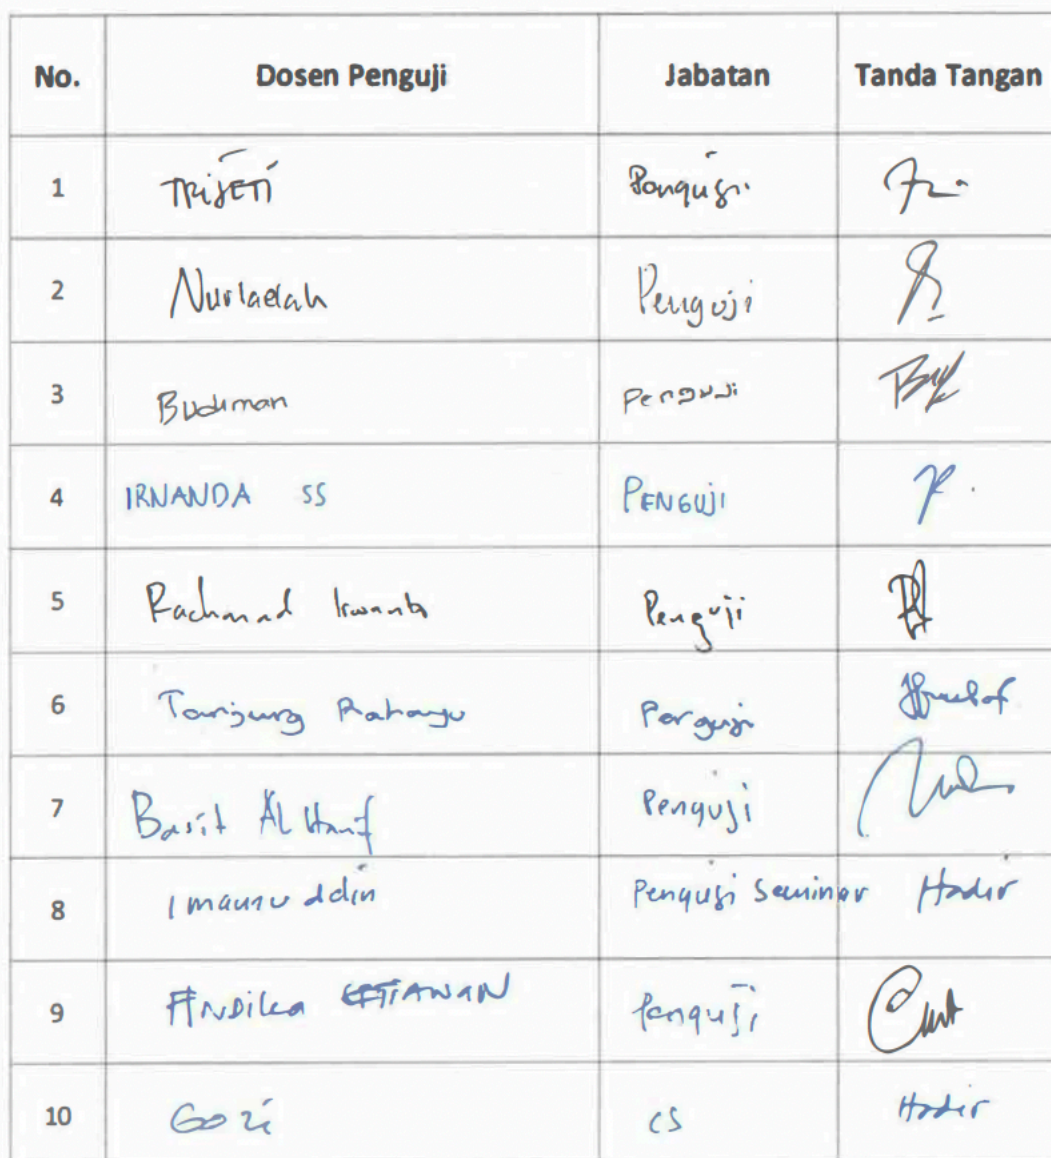 No. Dosen Penguji Jabatan Tanda Tangan
1 TRIJETI Penguji
2 Nurlaelah Penguji
3 Budiman Penguji
4 IRNANDA SS PENGUJI
5 Rachmad Irwanto Penguji
6 Tanjung Rahayu Penguji
7 Basit Al Hanif Penguji
8 Imamuddin Penguji Seminar Hadir
9 ANDIKA SETIAWAN Penguji
10 Gozi CS Hadir